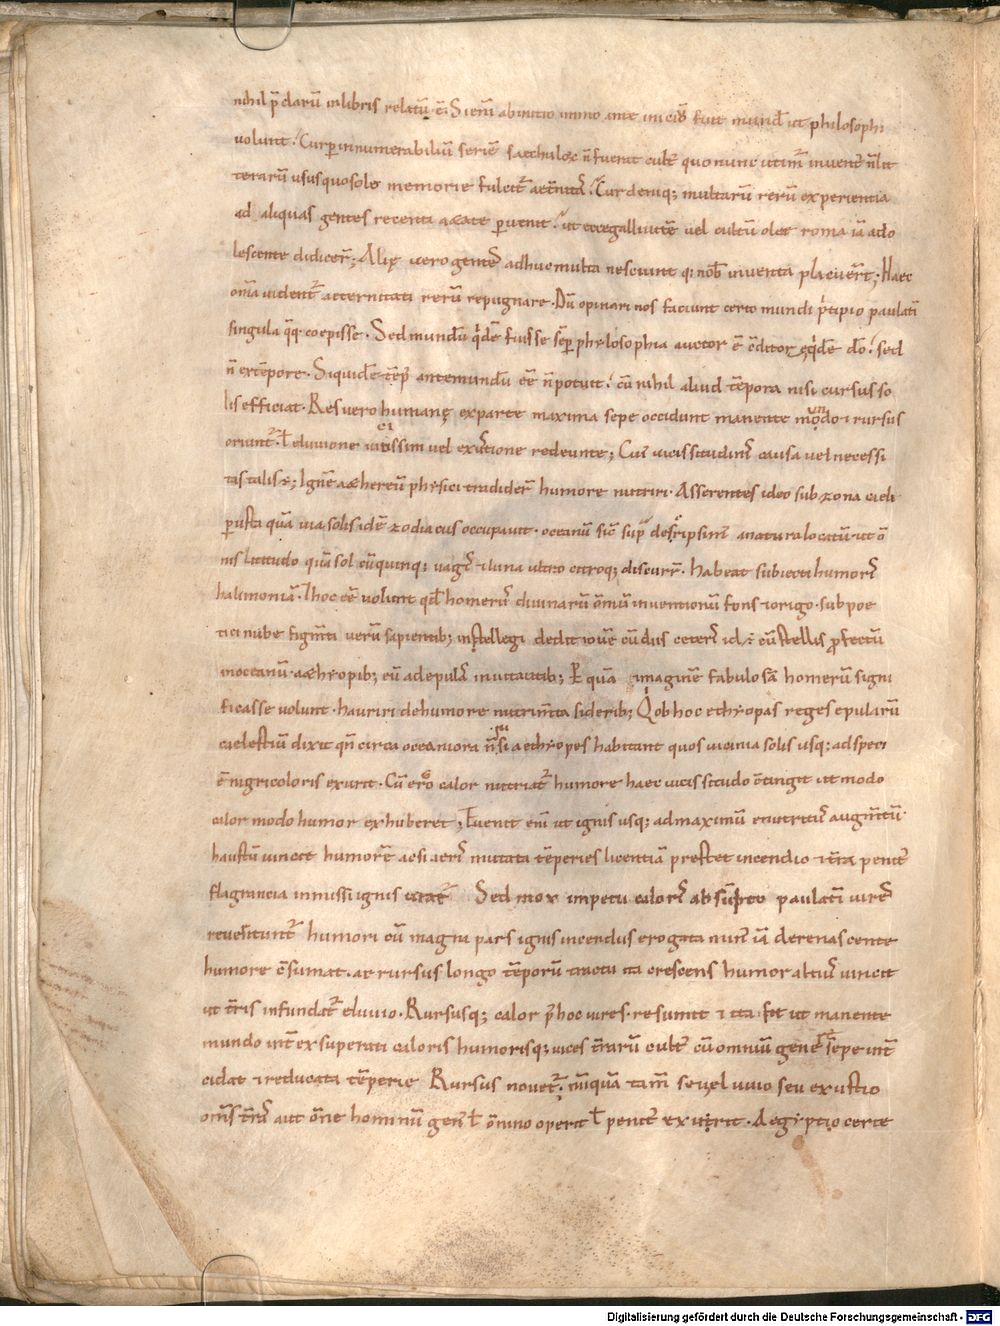 nihil p̄clarū inlibris relatū ē. Si enī abinitio immo ante initiū fuit mund' ut philosophi
volunt. Cur p innumerabiliū seriē saeculor̄ n̄ fuerat cult' quo nunc utimr̄ invent' n̄ lit
terarū usus quo solo memorie fulcit̄ aet̄nitas. Cur deniq; multarū rerū experientia
ad aliquas gentes recenti aetate pvenit. ut ecce galli vitē vel cultū oleę roma iā ado
lescente didicer̄; Alię vero gentes adhuc multa nesciunt q; nob̄ inventa placuer̄t; Haec
om̄a vident̄ aeternitati rerū repugnare. Dū opinari nos faciunt certo mundi p̄ncipio paulatī
singula q̄q; coepisse. Sed mundū q̇dē fuisse sēp phylosophia auctor ē c̄ditor eq̇dē do. sed
n̄ ex tēpore. Siquidē tēp' ante mundū eē n̄ potuit. cū nihil aliud tēpora nisi cursus so
lis efficiat. Res vero humanę ex parte maxima sepe occidunt manente mundo & rursus
oriunt̄. ł eluvione vicissim vel exustione redeunte; Cui' vicissitudinis causa vel necessi
tas talis ē; Ignē aethereū physici tradider̄ humore nutriri. Asserentes ideo sub zona caeli
pusta quā via solis idē zodiacus occupavit. oceanū sic' sup' descripsim' a natura locatū. ut ō
nis latitudo quā sol cū quinq; vagis & luna ultro citroq; discurr̄. habeat subiecti humoris
halimoniā. & hoc eē volunt qd homerus divinarū omniū inventionū fons & origo. sub poe
tici nube figm̄ti verū sapientib; intellegi dedit iovē cū diis ceteris id ē cū stellis profectū
in oceanū. aethyopib; eū ad epulas invitantib; P quā imaginē fabulosā homerū signi
ficasse volunt. hauriri de humore nutrim̄ta siderib; Q ob hoc ethyopas reges epularū
caelestiū dixit qn̄ circa oceani ora n̄ nisi aethyopes habitant quos vicinia solis usq; ad speci
ē nigri coloris exurit. Cū ergo calor nutriat̄ humore haec vicissitudo c̄tingit ut modo
calor modo humor exhuberet; Evenit enī ut ignis usq; ad maximū enutritus augm̄tū.
haustū vincit humorē ac si aeris mutata tēperies licentiā prestet incendio & t̄ra penit'
flagrancia inmissi ignis urat̄ Sed mox impetu caloris absūpto paulatī vires
revertunt̄ humori cū magna pars ignis incendiis erogata min' iā de renascente
humore c̄sumat. ac rursus longo tēporū tractu ita crescens humor altius vincit
ut t̄ris infundat̄ eluvio. Rursusq; calor p̄ hoc vires resumit & ita fit ut manente
mundo int̄ exsuperati caloris humorisq; vices t̄rarū cult' cū omniū genere sepe int̄
cidat & reducata tēperie Rursus novet̄. nūquā tam̄ seu eluvio seu exustio
om̄s t̄ras aut ōne hominū gen' ł ōmnino operit ł penit' exurit. Aegyptio certe
Digitalisierung gefördert durch die Deutsche Forschungsgemeinschaft - DFG